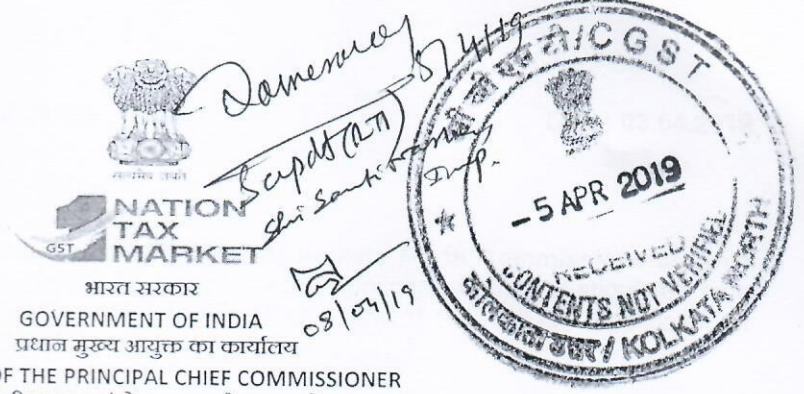 5/4/19
Supdt (RTI)
सत्यमेव जयते
NATION
TAX
MARKET
GST
08/04/19
भारत सरकार
GOVERNMENT OF INDIA
प्रधान मुख्य आयुक्त का कार्यालय
OF THE PRINCIPAL CHIEF COMMISSIONER
/CGST
-5 APR 2019
RECEIVED
CONTENTS NOT VERIFIED
कोलकाता उत्तर / KOLKATA NORTH